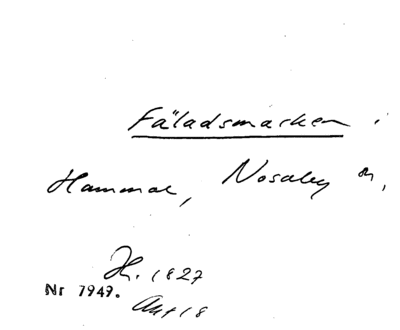 Fäladsmarken i
Hammar, Nosaby sn,
1827
Nr 7947.
Akt 18